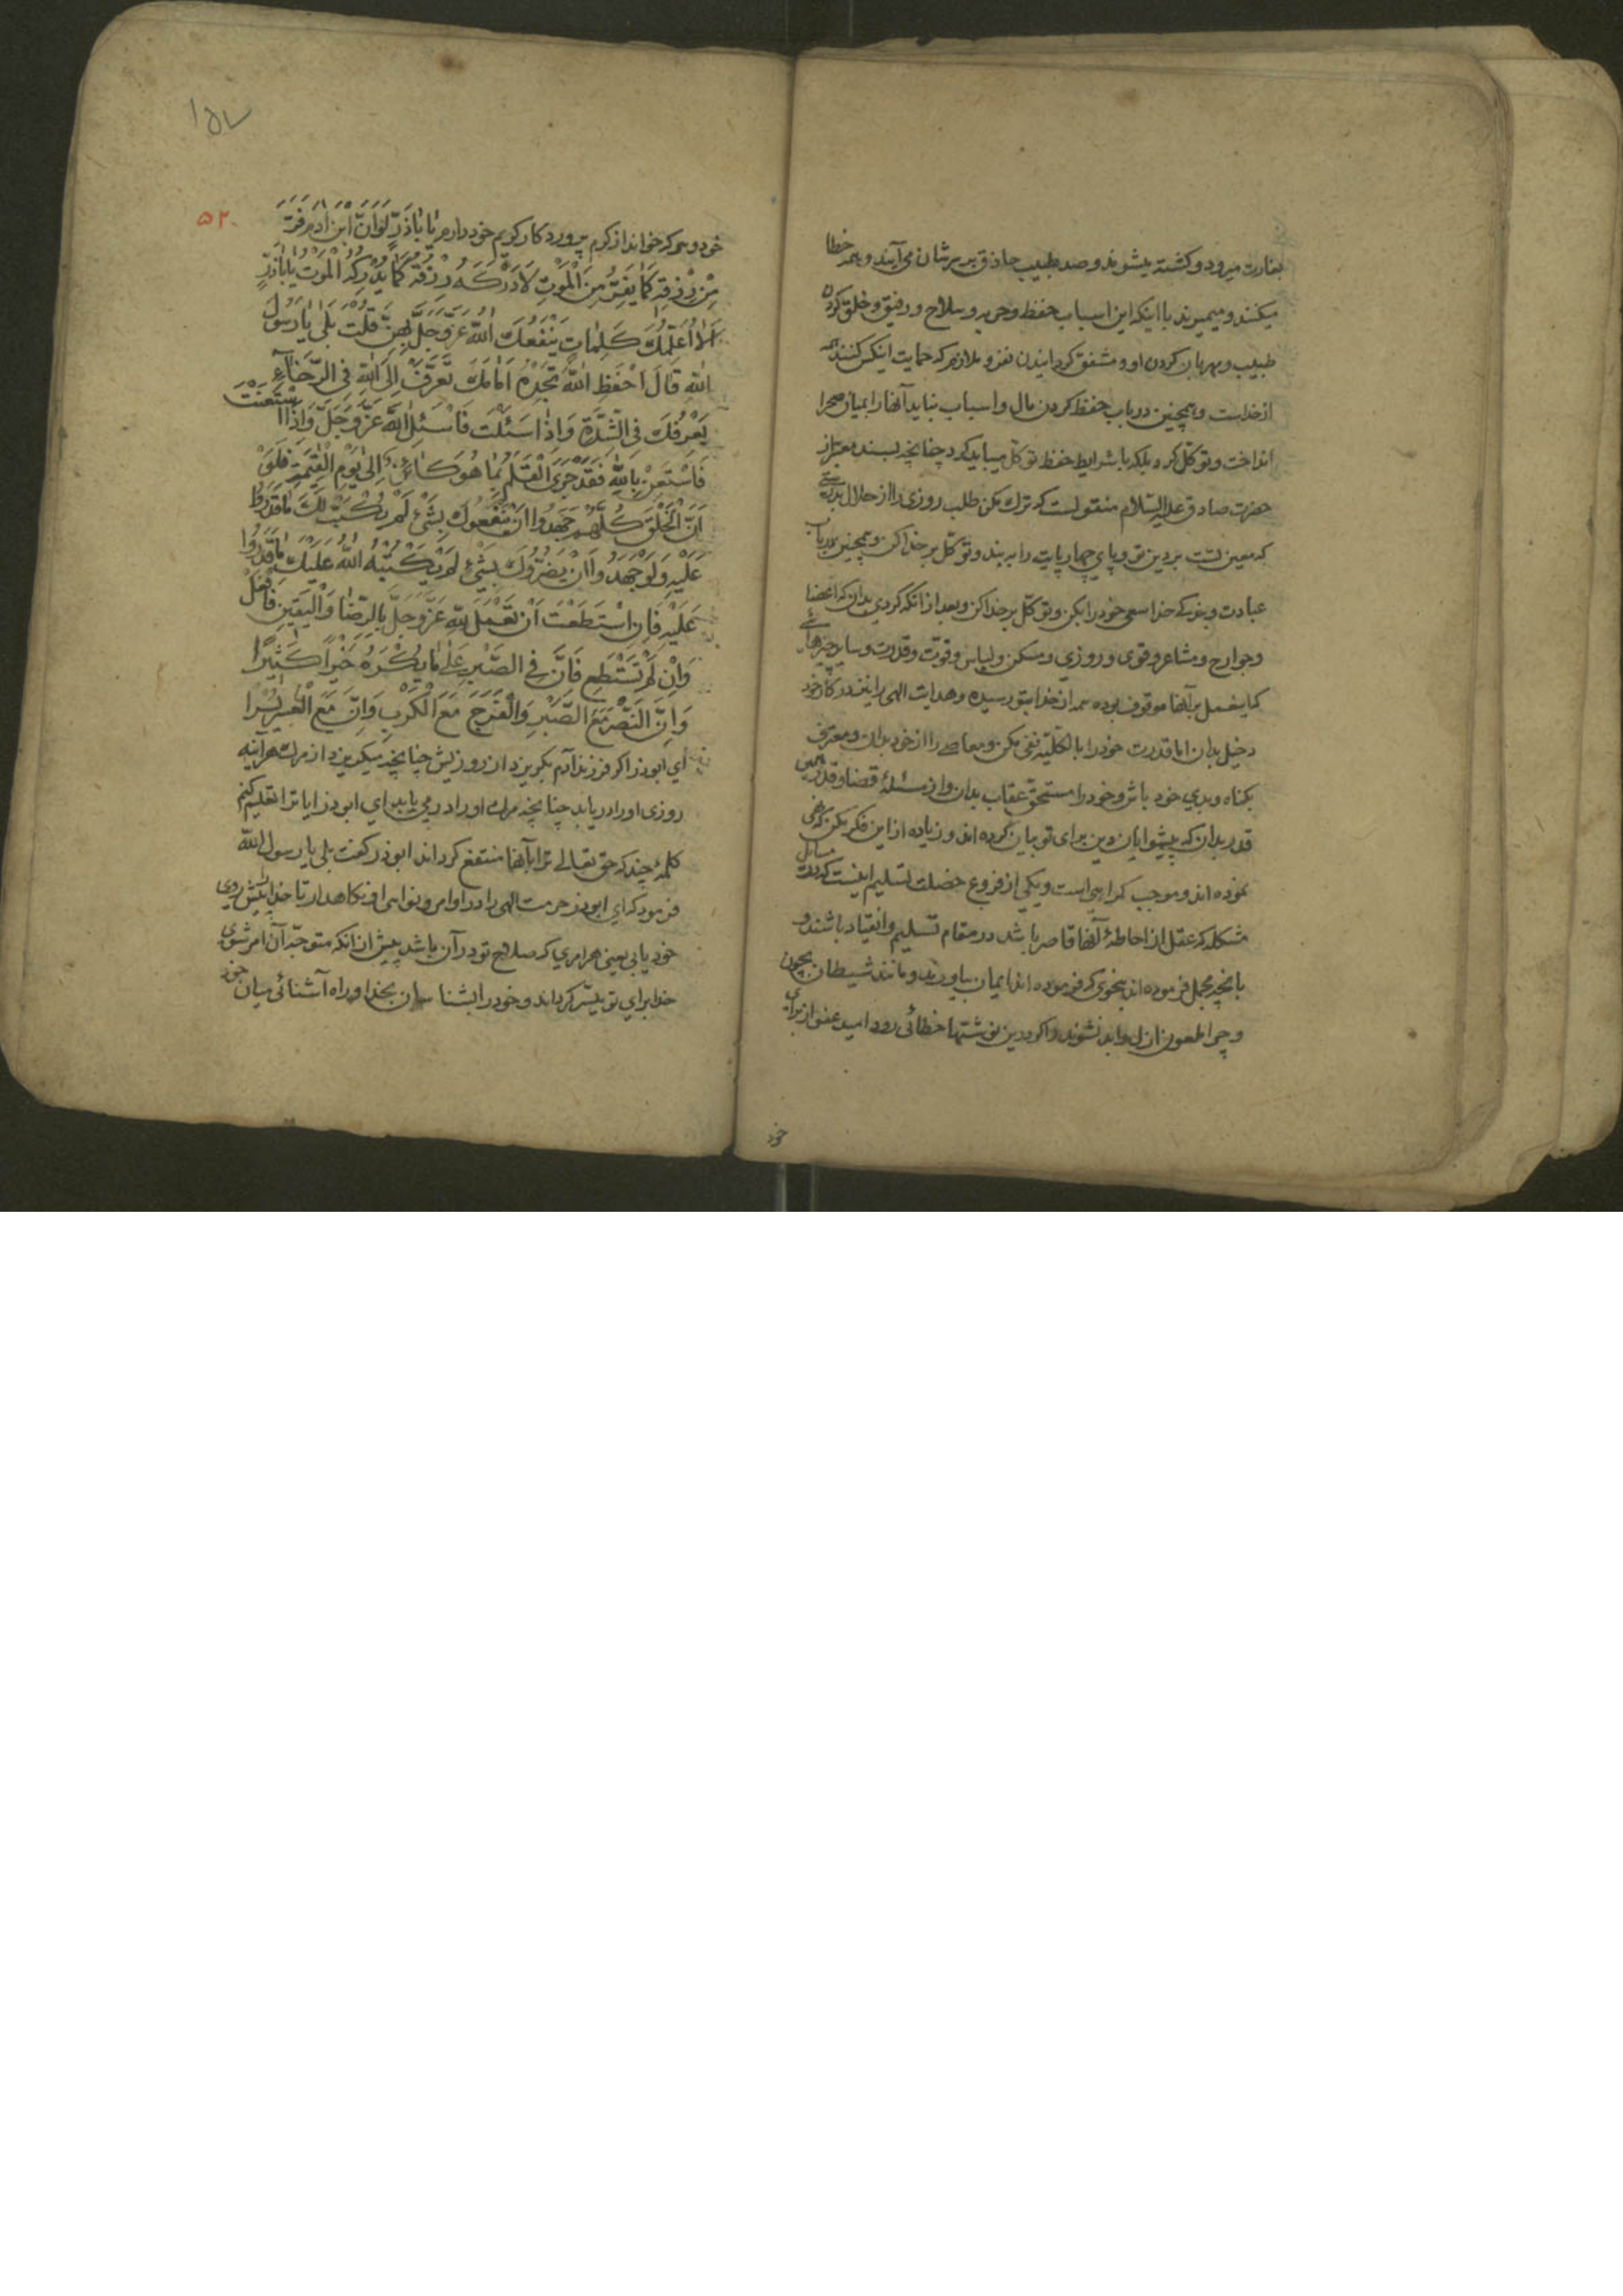 بغارت میرود و کشته میشوند و صد طبیب حاذق بر سرشان می‌آیند و همه خطا
میکنند و میمیرند با اینکه این اسباب حفظ و حربه و سلاح و رفیق و خلق کردن
طبیب و مهربان کردن او و مشفق گردانیدن نفر و ملازم که حمایت اینکس کنند همه
از خداست و همچنین در باب حفظ کردن مال و اسباب نباید آنها را بمیان صحرا
انداخت و توکل کرد بلکه با شرایط حفظ توکل میباید کرد چنانچه بسند معتبر از
حضرت صادق علیه السّلام منقولست که ترك مکن طلب روزی را از حلال بدرستی
که معین تست بر دین تو و پای چهارپایت را به بند و توکّل بر خدا کن و همچنین در باب
عبادت و بندگی خدا سعی خود را بکن و توکّل بر خدا کن و بعد از آنکه کردی بدان که اعضا
و جوارح و مشاعر و قوی و روزی و مسکن و لباس و قوت و قدرت و سایر چیزهائی
که این عمل بر آنها موقوف بوده همه از خدا بتو رسیده و هدایت الهی را نیز در کار خود
دخیل بدان اما قدرت خود را بالکلیّه نفی مکن و معاصی را از خود بدان و معترف
بگناه و بدی خود باش و خود را مستحق عقاب بدان و از مسئلهٔ قضا و قدر همین
قدر بدان که پیشوایان دین برای تو بیان کرده اند و زیاده از این فکر مکن که نهی
نموده اند و موجب گمراهی است و یکی از فروع خصلت تسلیم اینست که در مسائل
مشکله که عقل از احاطهٔ آنها قاصر باشد در مقام تسلیم و انقیاد باشند و
بانچه مجمل فرموده اند بنحوی که فرموده اند ایمان بیاورند و مانند شیطان بچون
و چرا ملعون ازل و ابد نشوند و اگر در این نوشتها خطائی رود امید عفو از برای
خود
۱۵۷
۵۲۰
خود و هر که خواند از کرم پروردگار کریم خود دارم یا اَباذَرٍّ لَوْ اَنَّ ابْنَ اٰدَمَ فَرَّ
مِنْ رِزْقِهِ کَمٰا یَفِرُّ مِنَ الْمَوْتِ لَاَدْرَکَهُ رِزْقُهُ کَمٰا یُدْرِکُهُ الْمَوْتُ یٰا اَبٰاذَرٍّ
اَلٰا اُعَلِّمُكَ کَلِمٰاتٍ یَنْفَعُكَ اللّٰهُ عَزَّوَجَلَّ بِهِنَّ قُلْتُ بَلٰی یٰا رَسُولَ
اللّٰهِ قٰالَ احْفَظِ اللّٰهَ تَجِدْهُ اَمٰامَكَ تَعَرَّفْ اِلَی اللّٰهِ فِی الرَّخٰآءِ
یَعْرِفْكَ فِی الشِّدَّةِ وَ اِذٰا سَئَلْتَ فَاسْئَلِ اللّٰهَ عَزَّ وَ جَلَّ وَ اِذَا اسْتَعَنْتَ
فَاسْتَعِنْ بِاللّٰهِ فَقَدْ جَرَی الْقَلَمُ بِمٰا هُوَ کٰائِنٌ اِلٰی یَوْمِ الْقِیٰمَةِ فَلَوْ
اَنَّ الْخَلْقَ کُلَّهُمْ جَهَدُوا اَنْ یَنْفَعُوكَ بِشَیْءٍ لَمْ یُکْتَبْ لَكَ مٰا قَدَرُوا
عَلَیْهِ وَ لَوْ جَهَدُوا اَنْ یَضُرُّوكَ بِشَیْءٍ لَمْ یَکْتُبْهُ اللّٰهُ عَلَیْكَ مٰا قَدَرُوا
عَلَیْهِ فَاِنِ اسْتَطَعْتَ اَنْ تَعْمَلَ لِلّٰهِ عَزَّ وَ جَلَّ بِالرِّضٰا وَ الْیَقِینِ فَافْعَلْ
وَ اِنْ لَمْ تَسْتَطِعْ فَاِنَّ فِی الصَّبْرِ عَلٰی مٰا یُکْرَهُ خَیْرًا کَثِیرًا
وَ اِنَّ النَّصْرَ مَعَ الصَّبْرِ وَ الْفَرَجَ مَعَ الْکَرْبِ وَ اِنَّ مَعَ الْعُسْرِ یُسْرًا
ای ابوذر اگر فرزند آدم بگریزد از روزیش چنانچه میگریزد از مرك هرآینه
روزی او را دریابد چنانچه مرك او را در می یابد ای ابوذر ایا ترا تعلیم کنم
کلمهٔ چند که حق تعالی ترا بآنها منتفع گرداند ابوذر گفت بلی یا رسول اللّه
فرمود که ای ابوذر حرمت الهی را در اوامر و نواهی او نگاهدار تا خدا را پیش روی
خود یابی یعنی هر امری که صلاح تو در آن باشد پیش از انکه متوجّه آن امر شوی
خدا برای تو میسّر گرداند و خود را بشناسان بخدا و راه آشنائی میان خود